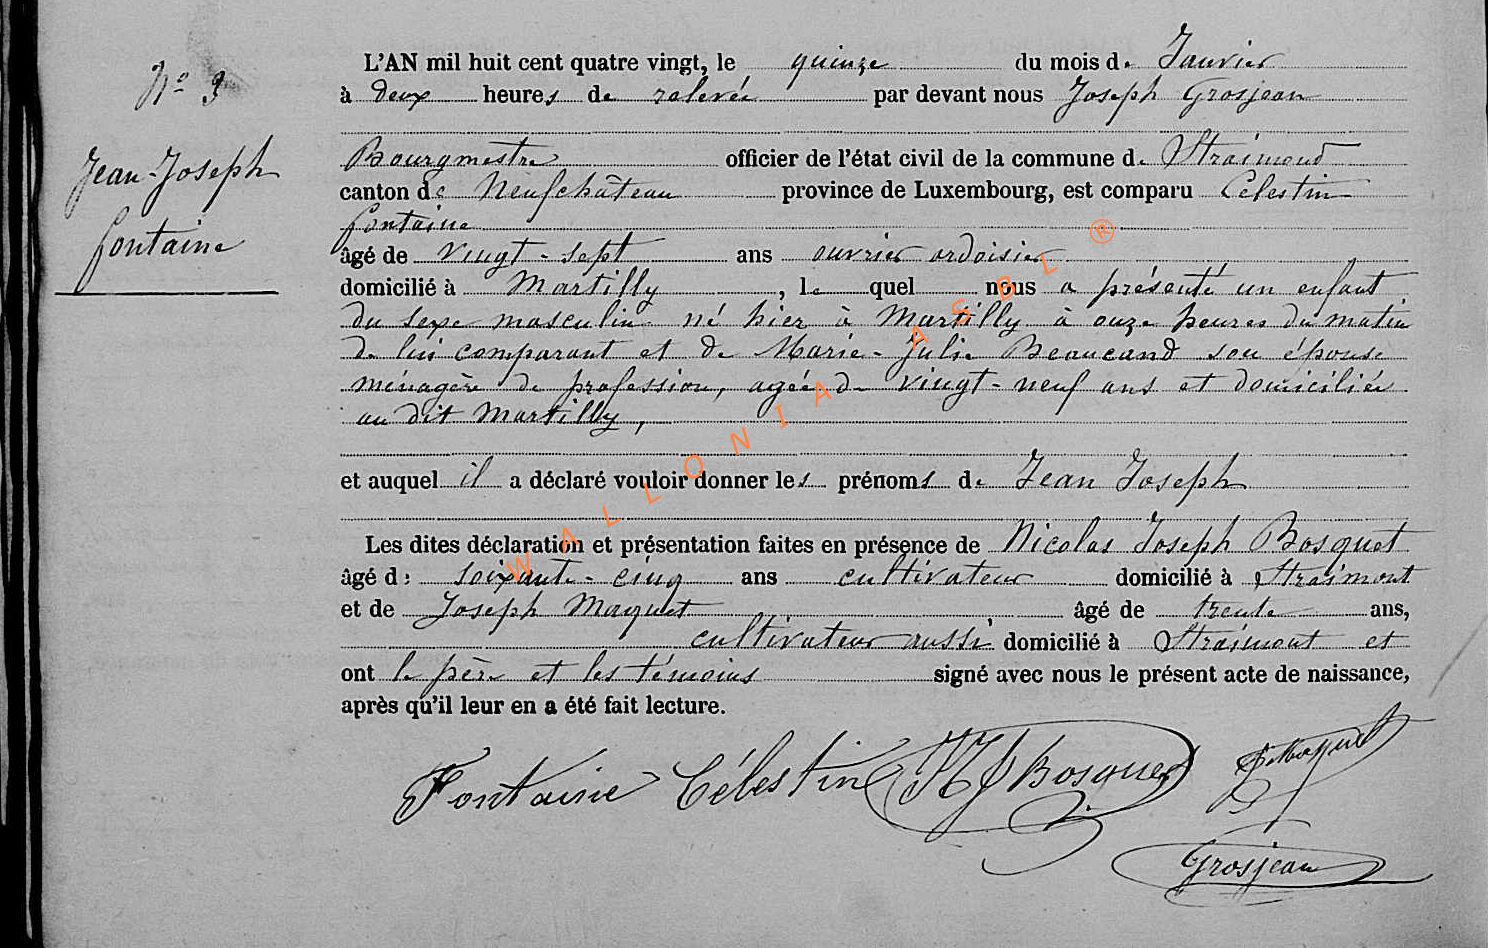 N° 3
Jean-Joseph
fontaine
L'AN mil huit cent quatre vingt, le quinze du mois de Janvier
à deux heures de relevée par devant nous Joseph Grosjean
Bourgmestre officier de l'état civil de la commune de Straimont
canton de Neufchâteau province de Luxembourg, est comparu Célestin
fontaine
âgé de vingt-sept ans ouvrier ardoisier
domicilié à Martilly, lequel nous a présenté un enfant
du sexe masculin né hier à Martilly à onze heures du matin
de lui comparant et de Marie-Julie Beaucand son épouse
ménagère de profession, agée de vingt-neuf ans et domiciliée
au dit Martilly,
et auquel il a déclaré vouloir donner les prénoms de Jean Joseph
Les dites déclaration et présentation faites en présence de Nicolas Joseph Bosquet
âgé de soixante-cinq ans cultivateur domicilié à Straimont
et de Joseph Maquet âgé de trente ans,
cultivateur aussi domicilié à Straimont et
ont le père et les témoins signé avec nous le présent acte de naissance,
après qu'il leur en a été fait lecture.
Fontaine Célestin NJ Bosquet J. Maquet
Grosjean
WALLONIA ASBL ®